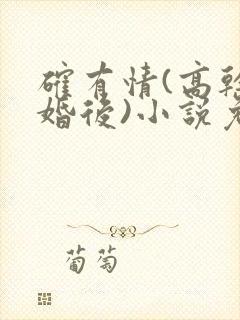 確有情(高幹
婚後)小說免
葡萄